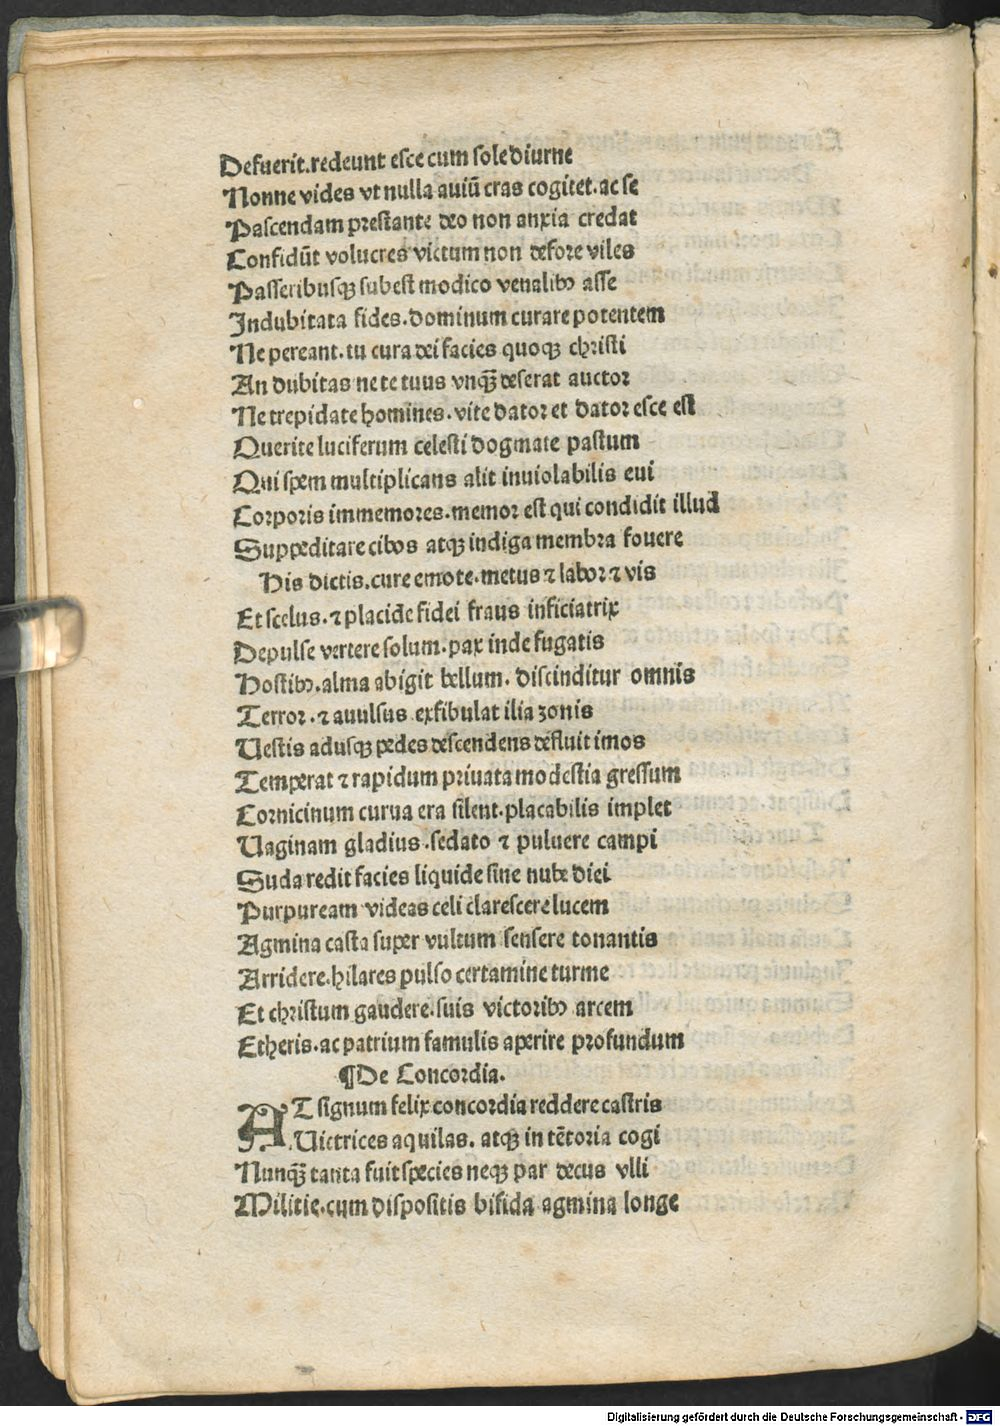 Defuerit.redeunt esce cum sole diurne
Nonne vides vt nulla auiū cras cogitet.ac se
Pascendam prestante deo non anxia credat
Confidūt volucres victum non defore viles
Passeribusqꝫ subest modico venalibꝰ asse
Indubitata fides.dominum curare potentem
Ne pereant.tu cura dei facies quoqꝫ christi
An dubitas ne te tuus vnqꝫ̄ deserat auctor
Ne trepidate homines.vite dator et dator esce est
Querite luciferum celesti dogmate pastum
Qui spem multiplicans alit inuiolabilis eui
Corporis immemores.memor est qui condidit illud
Suppeditare cibos atqꝫ indiga membra fouere
His dictis.cure emote.metus ⁊ labor ⁊ vis
Et scelus.⁊ placide fidei fraus inficiatrix
Depulse vertere solum.pax inde fugatis
Hostibꝰ.alma abigit bellum.discinditur omnis
Terror.⁊ auulsus exfibulat ilia zonis
Uestis adusqꝫ pedes descendens defluit imos
Temperat ⁊ rapidum priuata modestia gressum
Cornicinum curua era silent.placabilis implet
Uaginam gladius.sedato ⁊ puluere campi
Suda redit facies liquide sine nube diei
Purpuream videas celi clarescere lucem
Agmina casta super vultum sensere tonantis
Arridere.hilares pulso certamine turme
Et christum gaudere.suis victoribꝰ arcem
Etheris.ac patrium famulis aperire profundum
¶De Concordia.
AT signum felix concordia reddere castris
Uictrices aquilas.atqꝫ in tētoria cogi
Nunqꝫ̄ tanta fuit species neqꝫ par decus vlli
Militie.cum dispositis bifida agmina longe
Digitalisierung gefördert durch die Deutsche Forschungsgemeinschaft - DFG